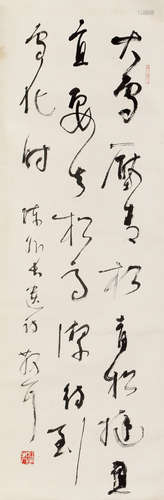 大雪壓青松青松挺且
直要知松高潔待到
雪化時
陳遺詩散耳